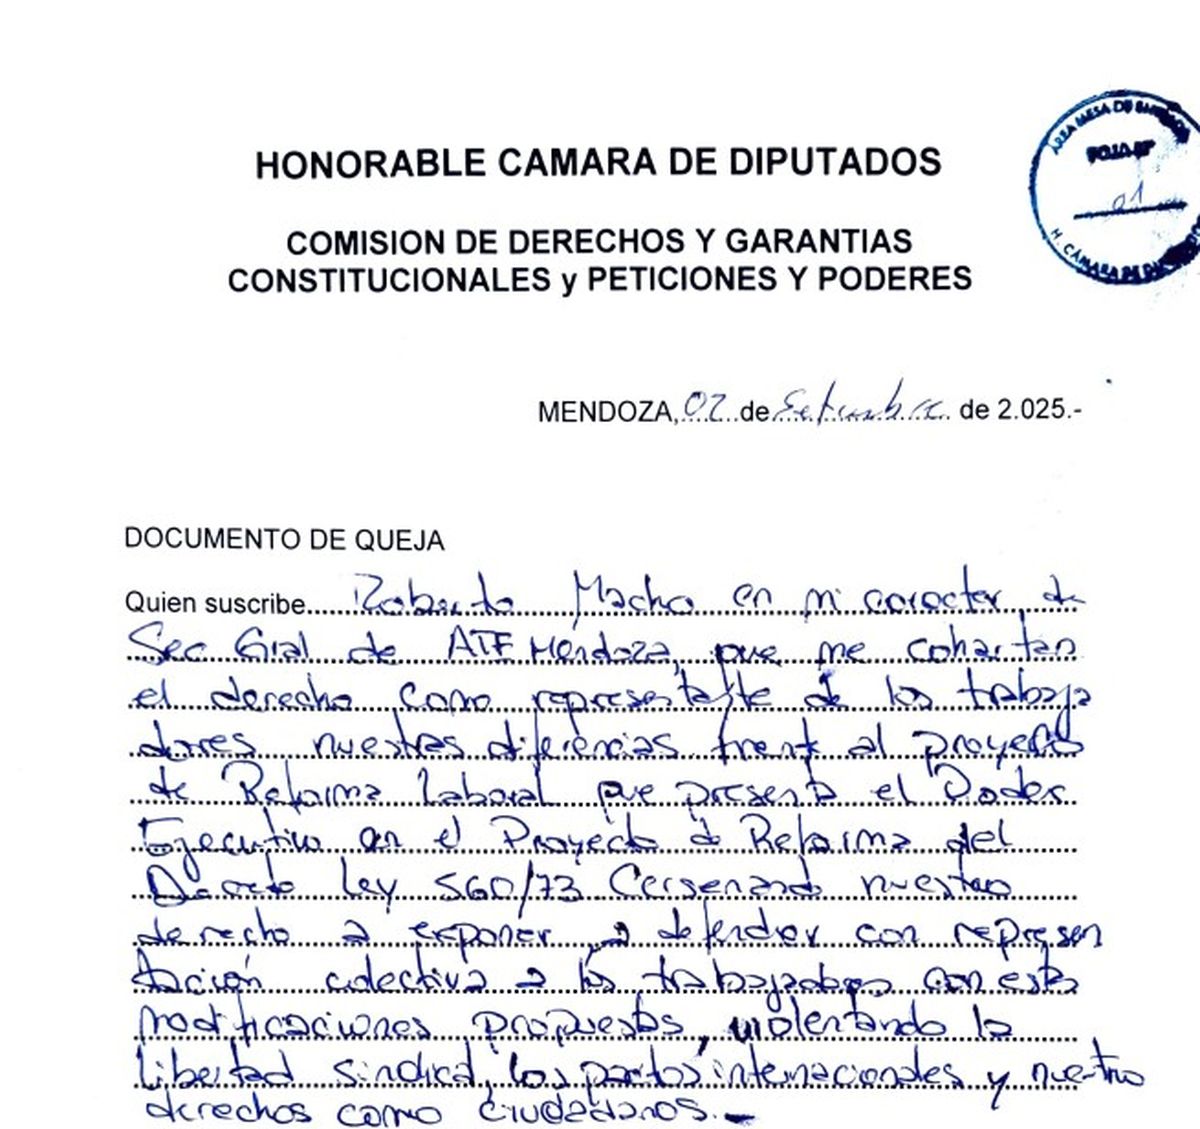 HONORABLE CAMARA DE DIPUTADOS
AREA MESA DE
FOJA Nº
01
H. CÁMARA DE
COMISION DE DERECHOS Y GARANTIAS
CONSTITUCIONALES y PETICIONES Y PODERES
MENDOZA, 02 de Setiembre de 2.025.-
DOCUMENTO DE QUEJA
Quien suscribe Roberto Macho en mi caracter de
Sec Gral de ATE Mendoza, que me cohartan
el derecho como representante de los trabaja
dores nuestras diferencias frent al proyecto
de Reforma Laboral que presenta el Poder
Ejecutivo en el Proyecto de Reforma del
Decreto Ley 560/73 Cersenando nuestro
derecho a exponer y a defender con represen
tación colectiva a los trabajadores con esta
modificaciones propuestas, violentando la
libertad sindical, los pactos internacionales y nuestro
derechos como ciudadanos.-